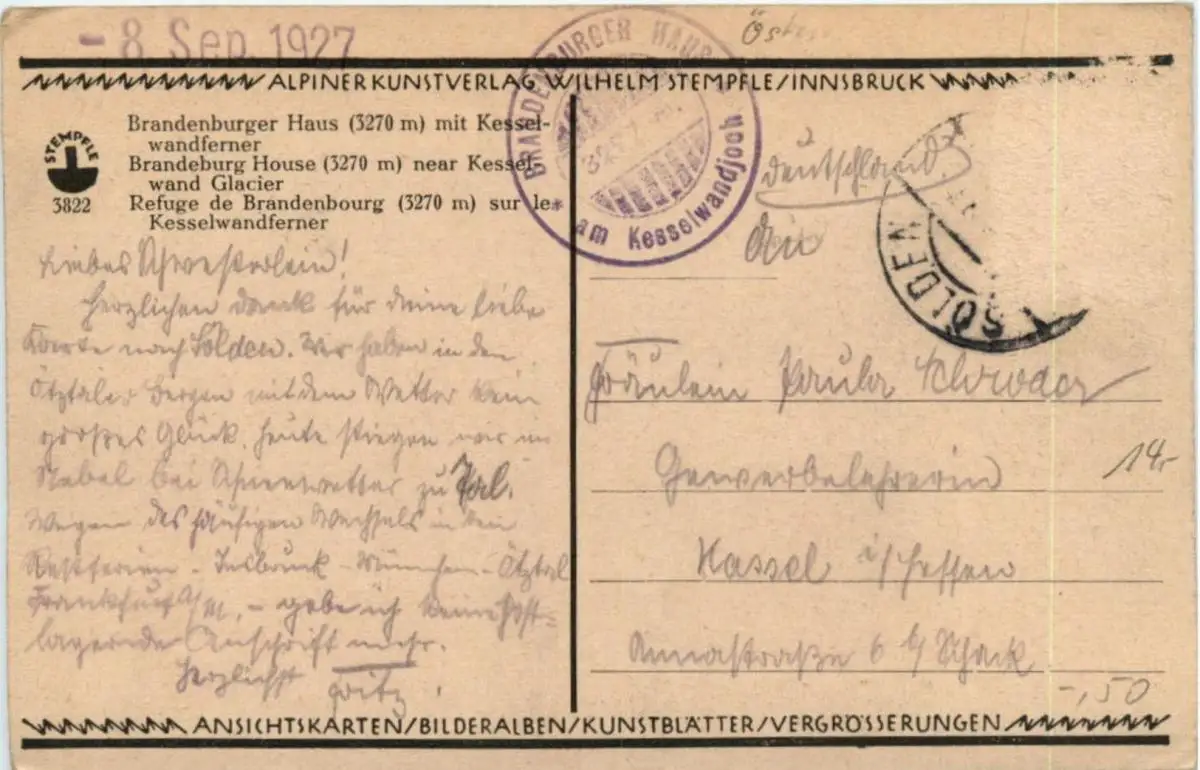 - 8. Sep. 1927
Öster
ALPINER KUNSTVERLAG WILHELM STEMPFLE/INNSBRUCK
BRANDENBURGER HAUS
am Kesselwandjoch
STEMPFLE
3822
Brandenburger Haus (3270 m) mit Kessel-
wandferner
Brandeburg House (3270 m) near Kessel-
wand Glacier
Refuge de Brandenbourg (3270 m) sur le
Kesselwandferner
Liebes Schwesterlein!
Herzlichen Dank für deine liebe
Karte nach Sölden. Wir haben in den
Ötztaler Bergen mit dem Wetter kein
großes Glück, heute stiegen wir im
Nebel bei Schneewetter zu Tal.
Wegen des häufigen Wechsels in den
Restferien - Insbruck - München - Ötztal
Frankfurt a/M, - gebe ich keine Post-
lagernde Anschrift mehr.
Herzlichst Fritz.
Deutschland.
SÖLDEN
An
Fräulein Paula Schröder
Gewerbelehrerin
14,-
Kassel i/Hessen
Annastraße 6 b/
-,50
ANSICHTSKARTEN/BILDERALBEN/KUNSTBLÄTTER/VERGRÖSSERUNGEN